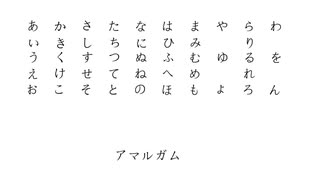 あ か さ た な は ま や ら わ
い き し ち に ひ み り
う く す つ ぬ ふ む ゆ る を
え け せ て ね へ め れ
お こ そ と の ほ も よ ろ ん
アマルガム